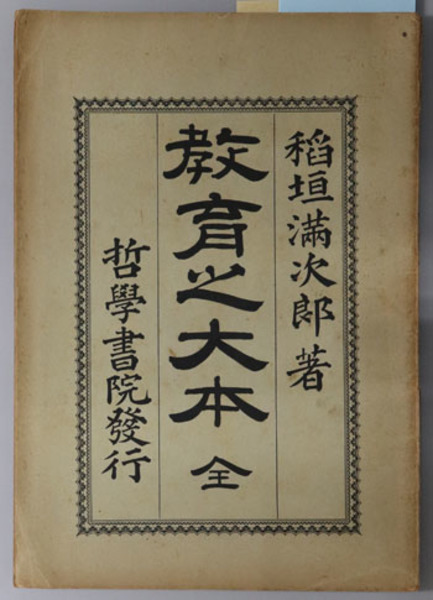 稻垣滿次郎著
教育之大本 全
哲學書院發行